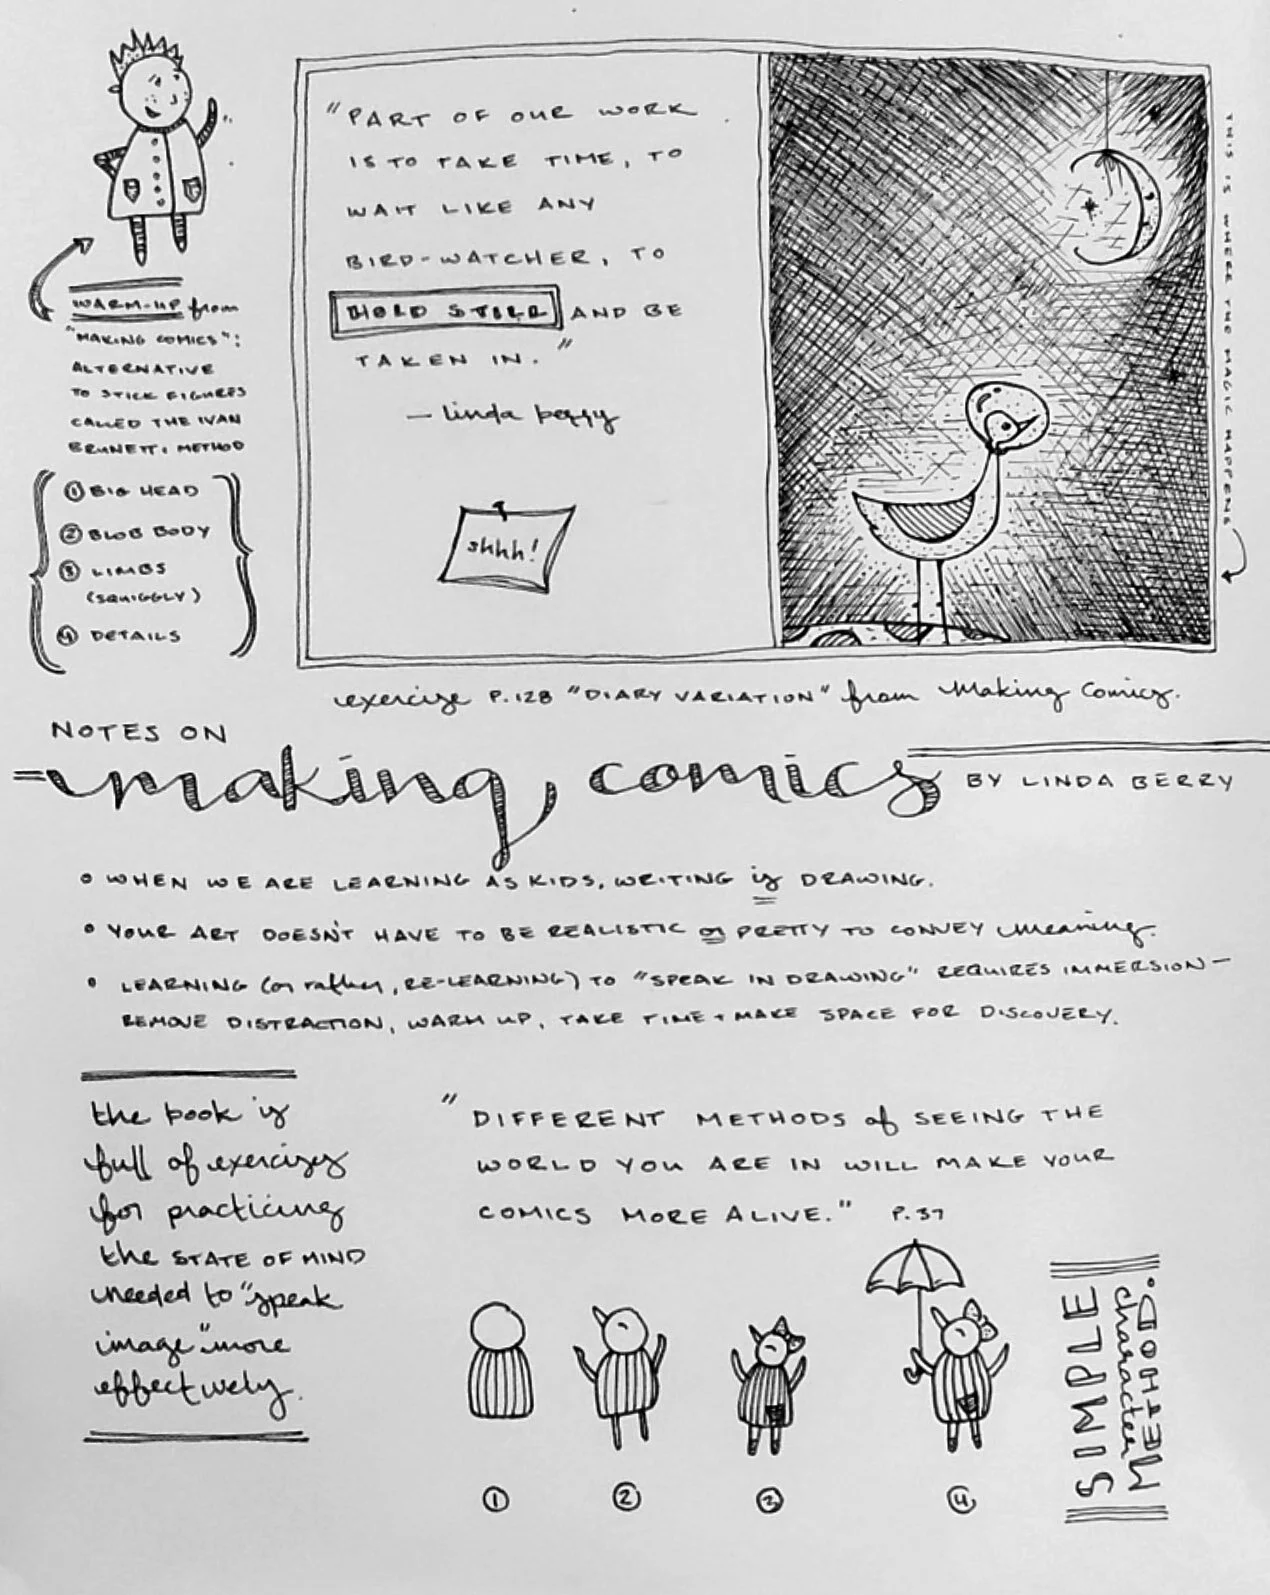 "PART OF OUR WORK
IS TO TAKE TIME, TO
WAIT LIKE ANY
BIRD-WATCHER, TO
HOLD STILL AND BE
TAKEN IN."
— linda berry
shhh!
THIS IS WHERE THE MAGIC HAPPENS
WARM-UP from
"MAKING COMICS":
ALTERNATIVE
TO STICK FIGURES
CALLED THE IVAN
BRUNETTI METHOD
① BIG HEAD
② BLOB BODY
③ LIMBS
(SQUIGGLY)
④ DETAILS
exercise P.128 "DIARY VARIATION" from Making Comics.
NOTES ON
making comics BY LINDA BERRY
• WHEN WE ARE LEARNING AS KIDS, WRITING is DRAWING.
• YOUR ART DOESN'T HAVE TO BE REALISTIC or PRETTY TO CONVEY meaning.
• LEARNING (or rather, RE-LEARNING) TO "SPEAK IN DRAWING" REQUIRES IMMERSION —
REMOVE DISTRACTION, WARM UP, TAKE TIME + MAKE SPACE FOR DISCOVERY.
the book is
full of exercises
for practicing
the STATE OF MIND
needed to "speak
image" more
effectively.
"DIFFERENT METHODS of SEEING THE
WORLD YOU ARE IN WILL MAKE YOUR
COMICS MORE ALIVE." P.37
① ② ③ ④
SIMPLE
character
METHOD.